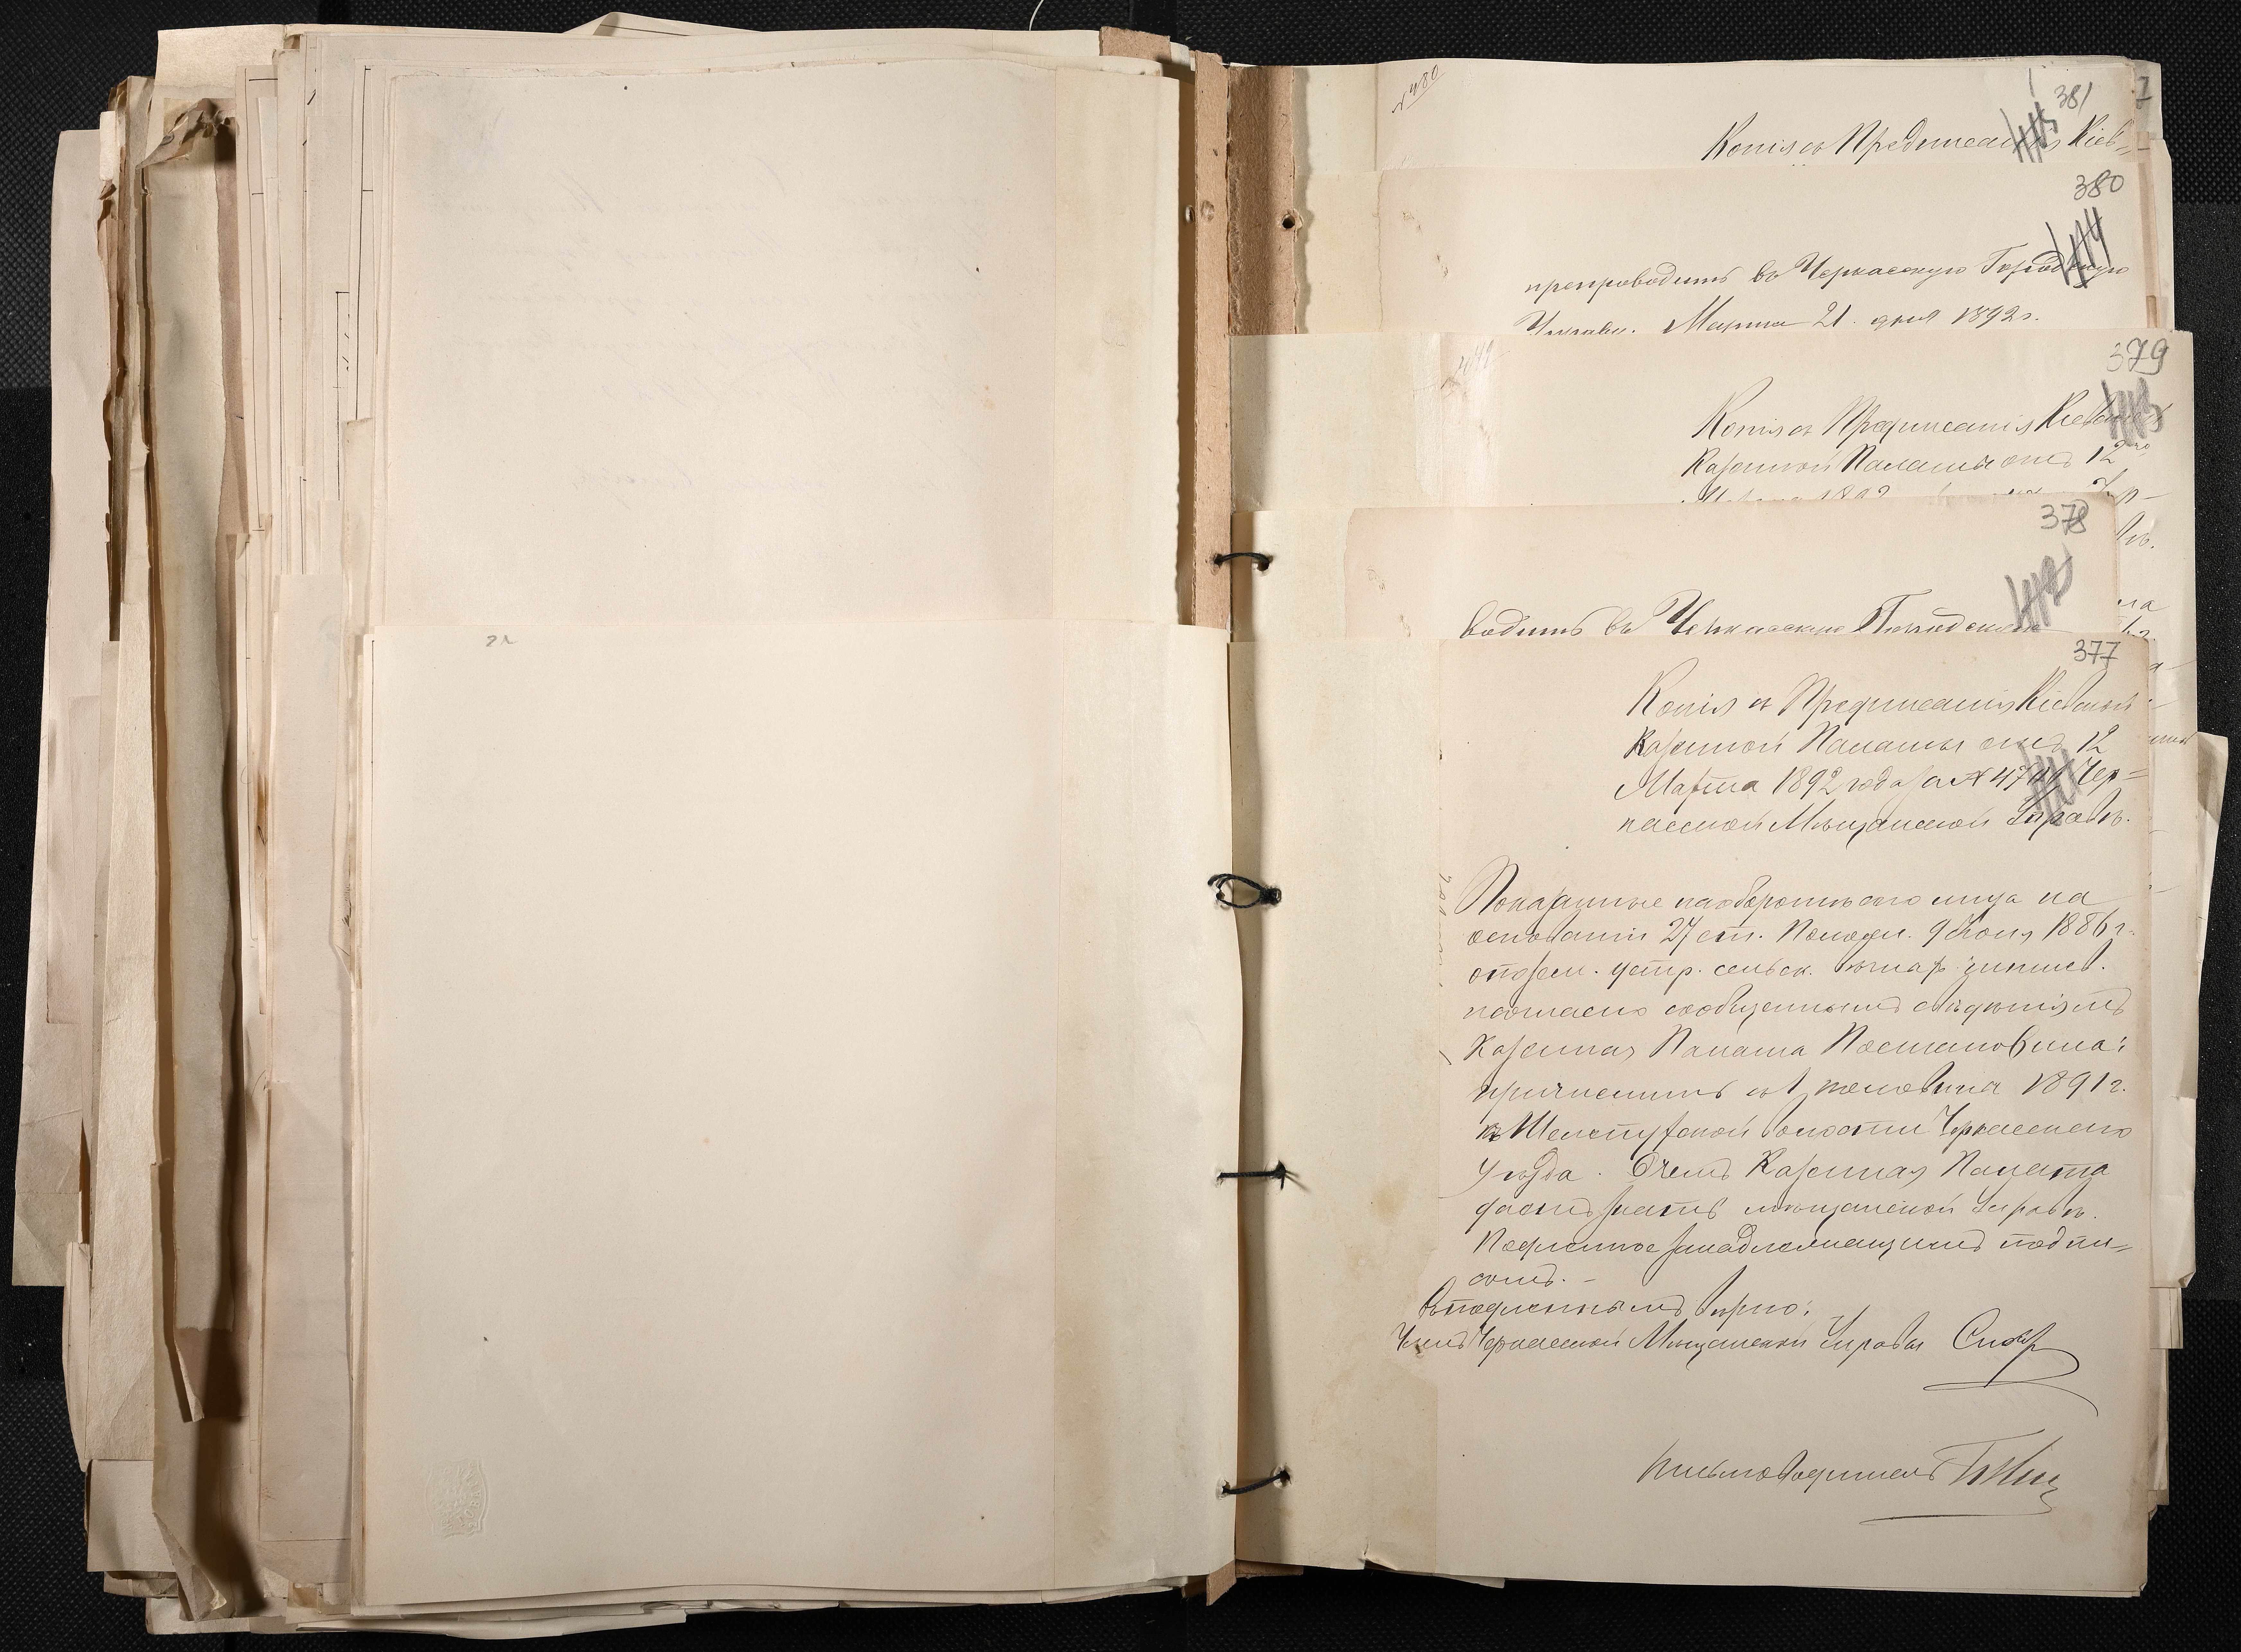 381
Копія съ Предписанія Кіев=
380
препроводить въ Черкасскую Городскую
Управу. Марта 21 дня 1892 г.
379
Копія съ Предписанія Кіевской
Казенной Палаты отъ 12го
378
водить въ Черкасскую Городскую
377
Копія съ Предписанія Кіевской
Казенной Палаты отъ 12
Марта 1892 года за № Чер=
касской Мѣщанской Управѣ.
Показанные на оборотѣ сего лица на
основаніи 27 ст. Полож. 9 Іюня 1886 г.
о позем. устр. сельск. вѣчн. чиншев.
согласно сообщеннымъ свѣдѣніямъ
Казенная Палата Постановила:
причислить съ 1 половины 1891 г.
къ волости Черкасскаго
уѣзда. О чемъ Казенная Палата
даетъ знать мѣщанской Управѣ.
Подлинное за надлежащимъ подпи=
сомъ. -
Съ подлиннымъ вѣрно:
Членъ Черкасской Мѣщанской Управы
Письмоводитель